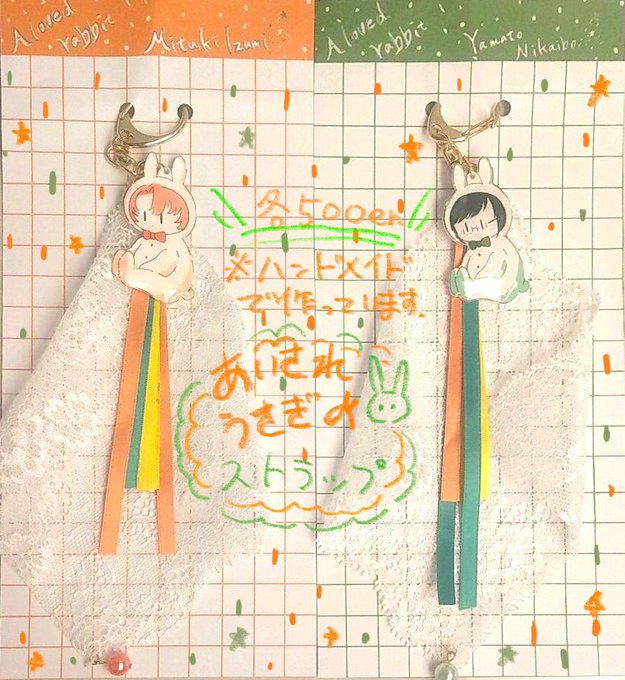 A loved
rabbit
Mituki Izumi
A loved
rabbit
Yamato
Nikaido
各500en
※ハンドメイド
で作ってします。
あいされ
うさぎの
ストラップ